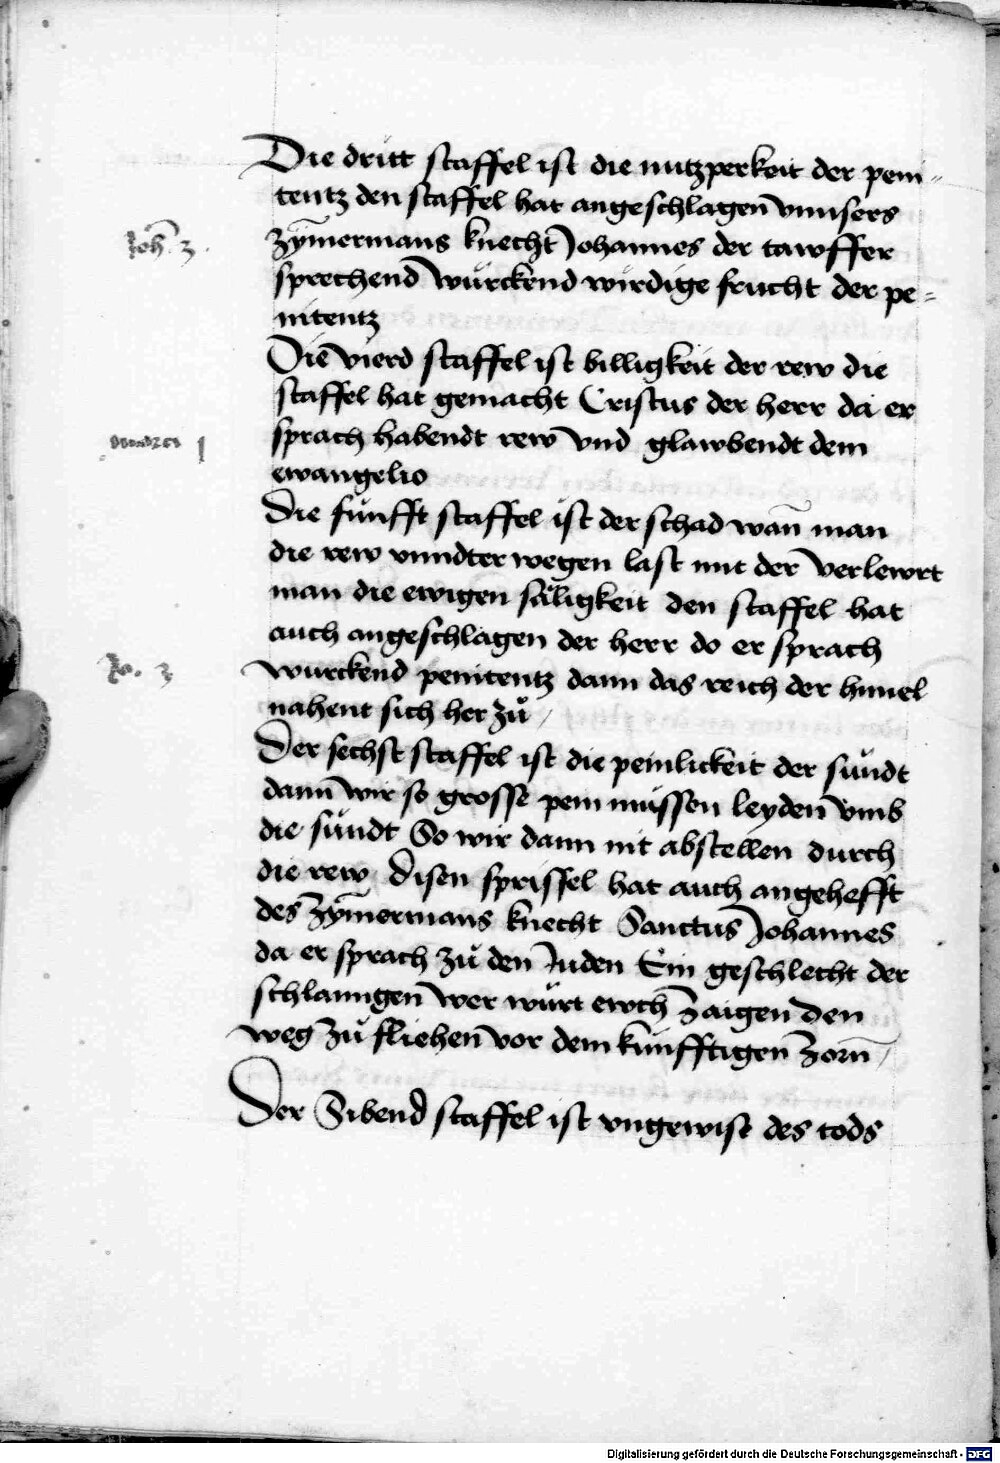 Die dritt staffel ist die nutzperkeit der peni-
tentz den staffel hat angeschlagen vnnsers
Joh̄. 3.
zȳmermans knecht Johannes der tawffer
sprechend würckend wirdige frucht der pe=
nitentz
Die vierd staffel ist billigkeit der rew die
staffel hat gemacht Cristus der herr da er
1
sprach habendt rew vnd glawbendt dem
ewangelio
Die fünfft staffel ist der schad wan̄ man
die rew vnndter wegen last mit der verlewrt
man die ewigen säligkeit den staffel hat
auch angeschlagen der herr do er sprach
3
wurckend penitentz dann das reich der himel
nahent sich her zů /
Der sechst staffel ist die peinlickeit der sündt
dann wir so grosse pein müssen leyden vmb
die sündt So wir dann nit abstellen durch
die rew Disen sprissel hat auch angehefft
des zȳmermans knecht Sanctus Johannes
da er sprach zů den Juden Ein geschlecht der
schlanngen wer würt ewch zaigen den
weg zů fliehen vor dem künfftigen zorn̄ /
Der Sibend staffel ist vngewist des tods
Digitalisierung gefördert durch die Deutsche Forschungsgemeinschaft - DFG